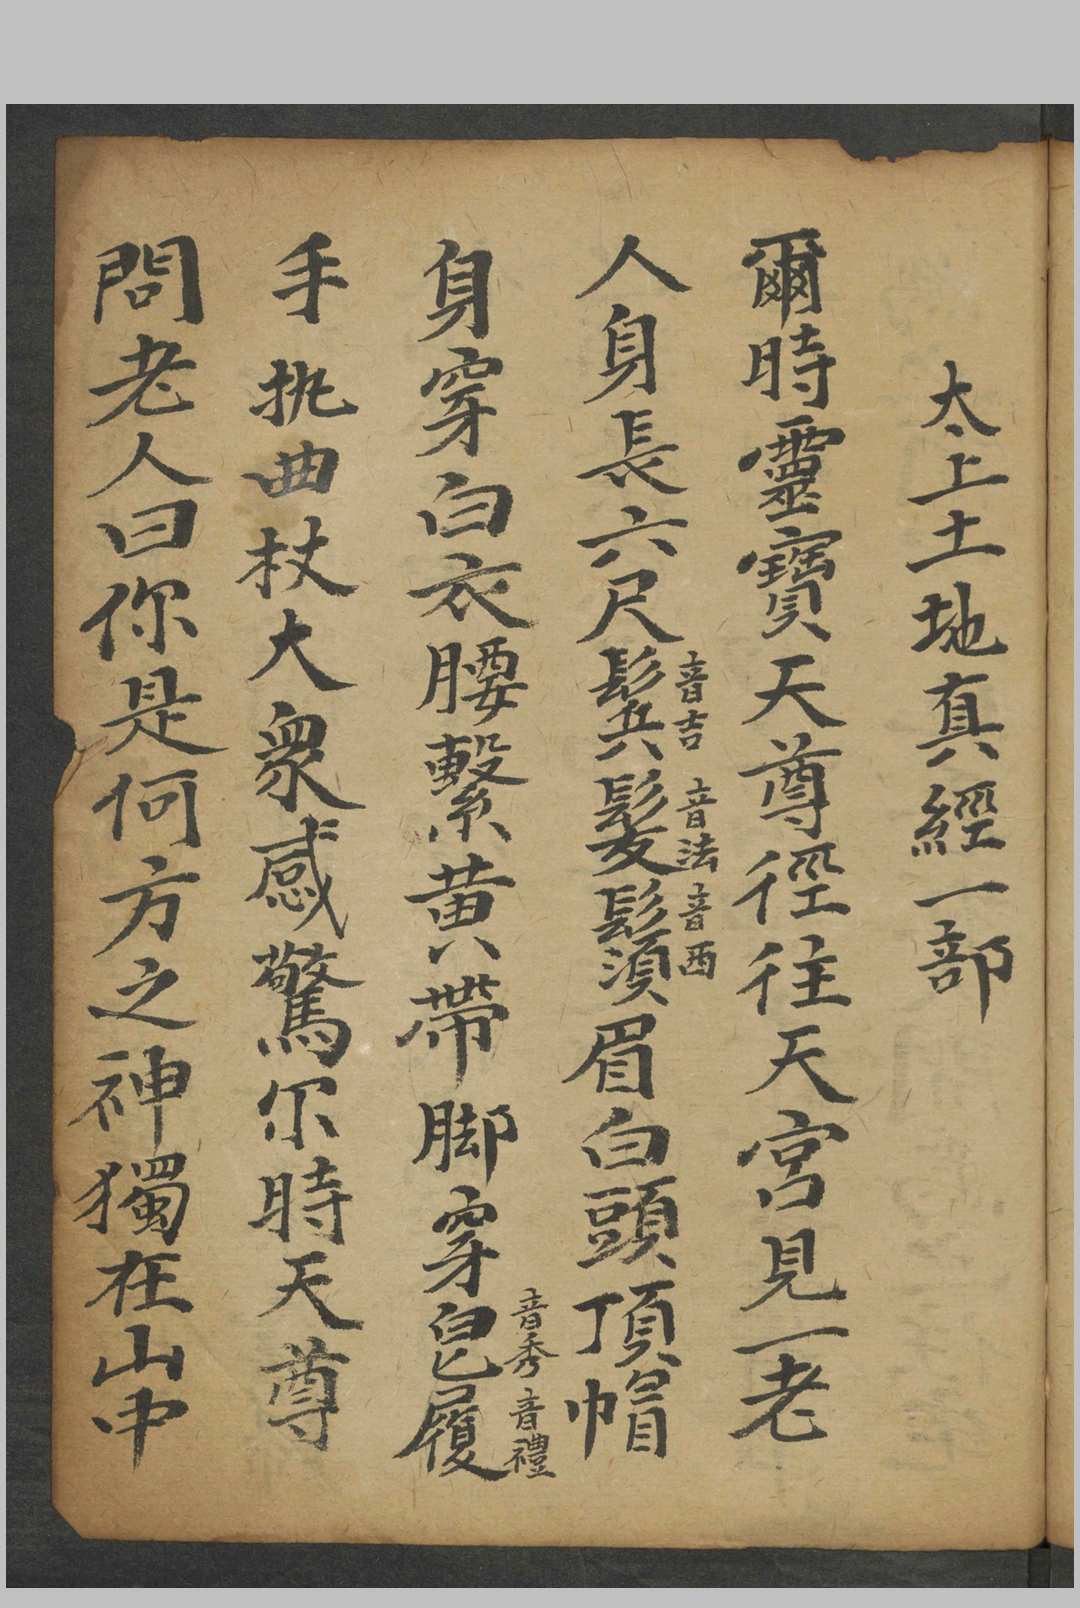 太上土地真經一部
爾時靈寶天尊徑往天宮見一老
人身長六尺鬂髮鬚眉白頭頂帽
音吉 音法 音西
身穿白衣腰繫黃帶脚穿皂履
音秀 音禮
手执曲杖大衆感驚尔時天尊
問老人曰你是何方之神獨在山中